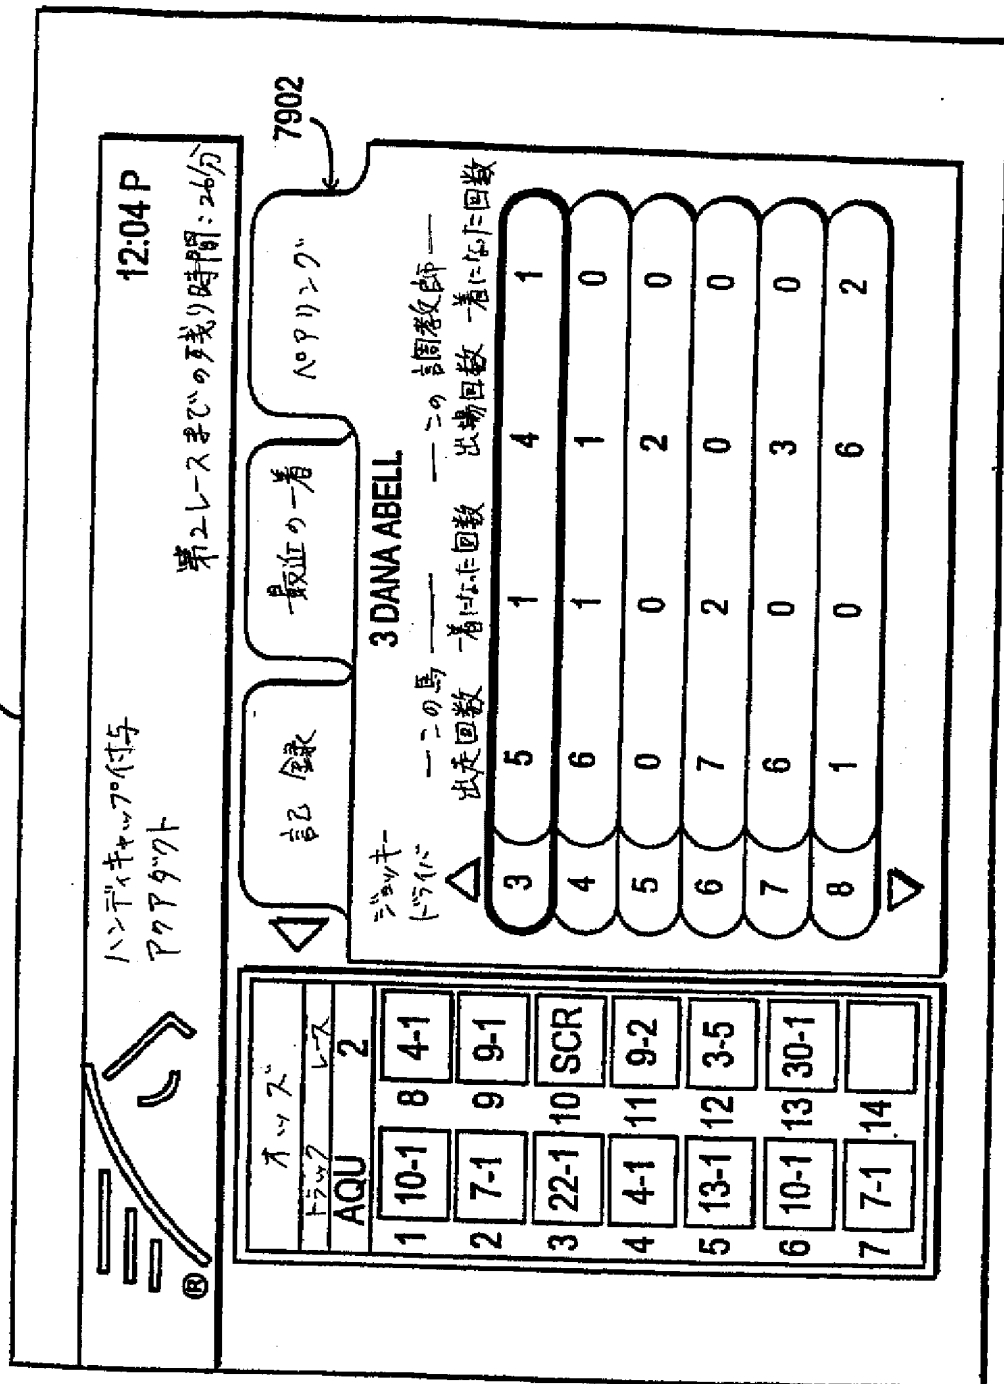 ハンディキャップ付与 12:04 P
アクアダクト 第2レースまでの残り時間:26分
®
オッズ
トラック レース
AQU 2
1 10-1 8 4-1
2 7-1 9 9-1
3 22-1 10 SCR
4 4-1 11 9-2
5 13-1 12 3-5
6 10-1 13 30-1
7 7-1 14
記録 最近の一着 ペアリング
7902
3 DANA ABELL
ジョッキー ―この馬― ―この調教師―
ドライバ 出走回数 一着になった回数 出場回数 一着になった回数
3 5 1 4 1
4 6 1 1 0
5 0 0 2 0
6 7 2 0 0
7 6 0 3 0
8 1 0 6 2